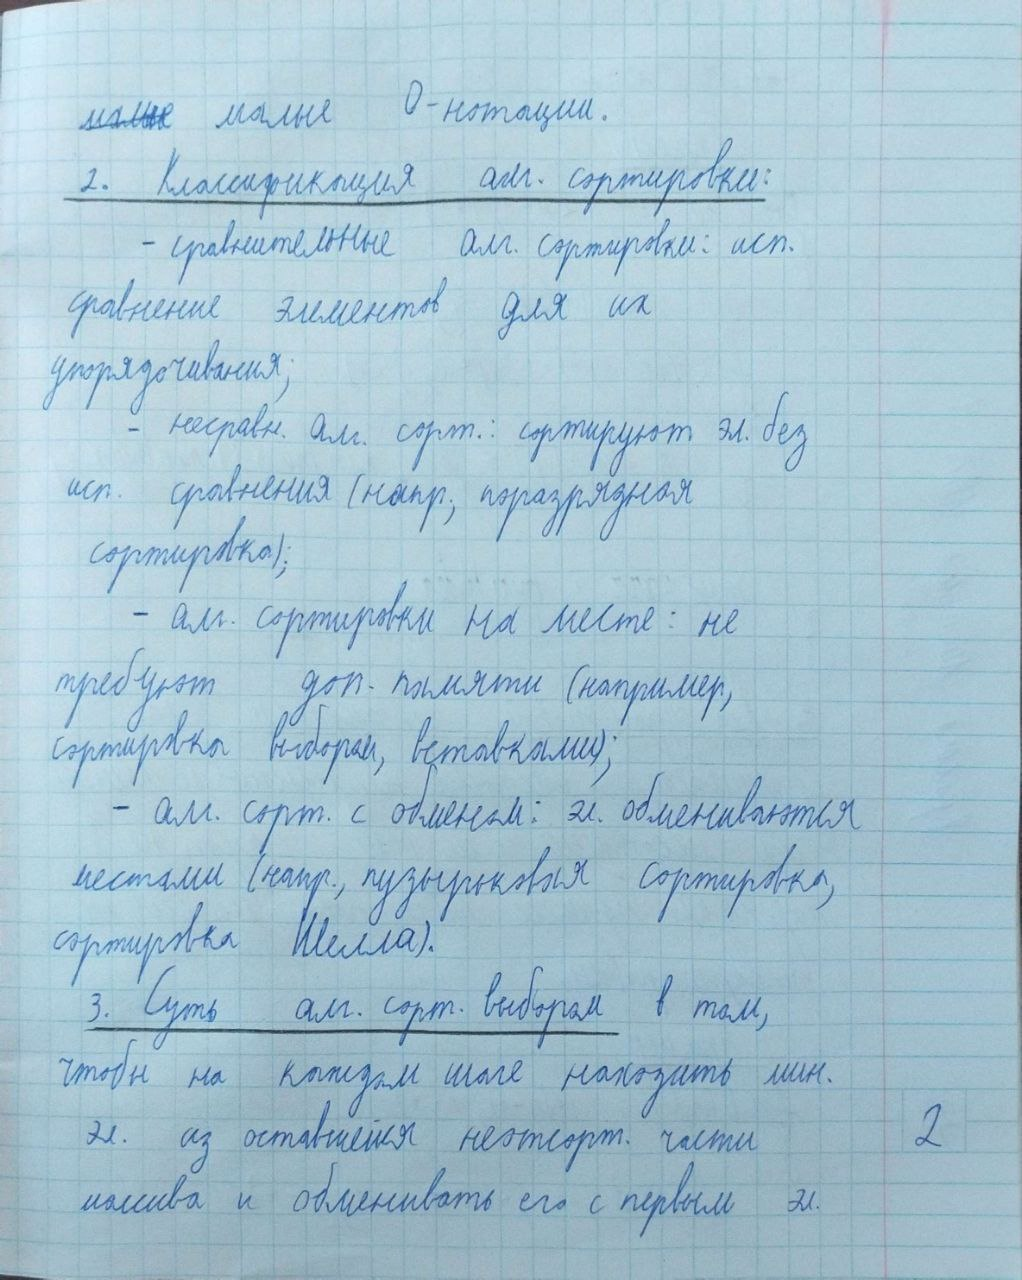 малые малые О-нотации.
2. Классификация алг. сортировки:
- сравнительные алг. сортировки: исп.
сравнение элементов для их
упорядочивания;
- несравн. алг. сорт.: сортируют эл. без
исп. сравнения (напр., поразрядная
сортировка);
- алг. сортировки на месте: не
требуют доп. памяти (например,
сортировка выбором, вставками);
- алг. сорт. с обменом: эл. обмениваются
местами (напр., пузырьковая сортировка,
сортировка Шелла).
3. Суть алг. сорт. выбором в том,
чтобы на каждом шаге находить мин.
эл. из оставшейся неотсорт. части
массива и обменивать его с первым эл.
2